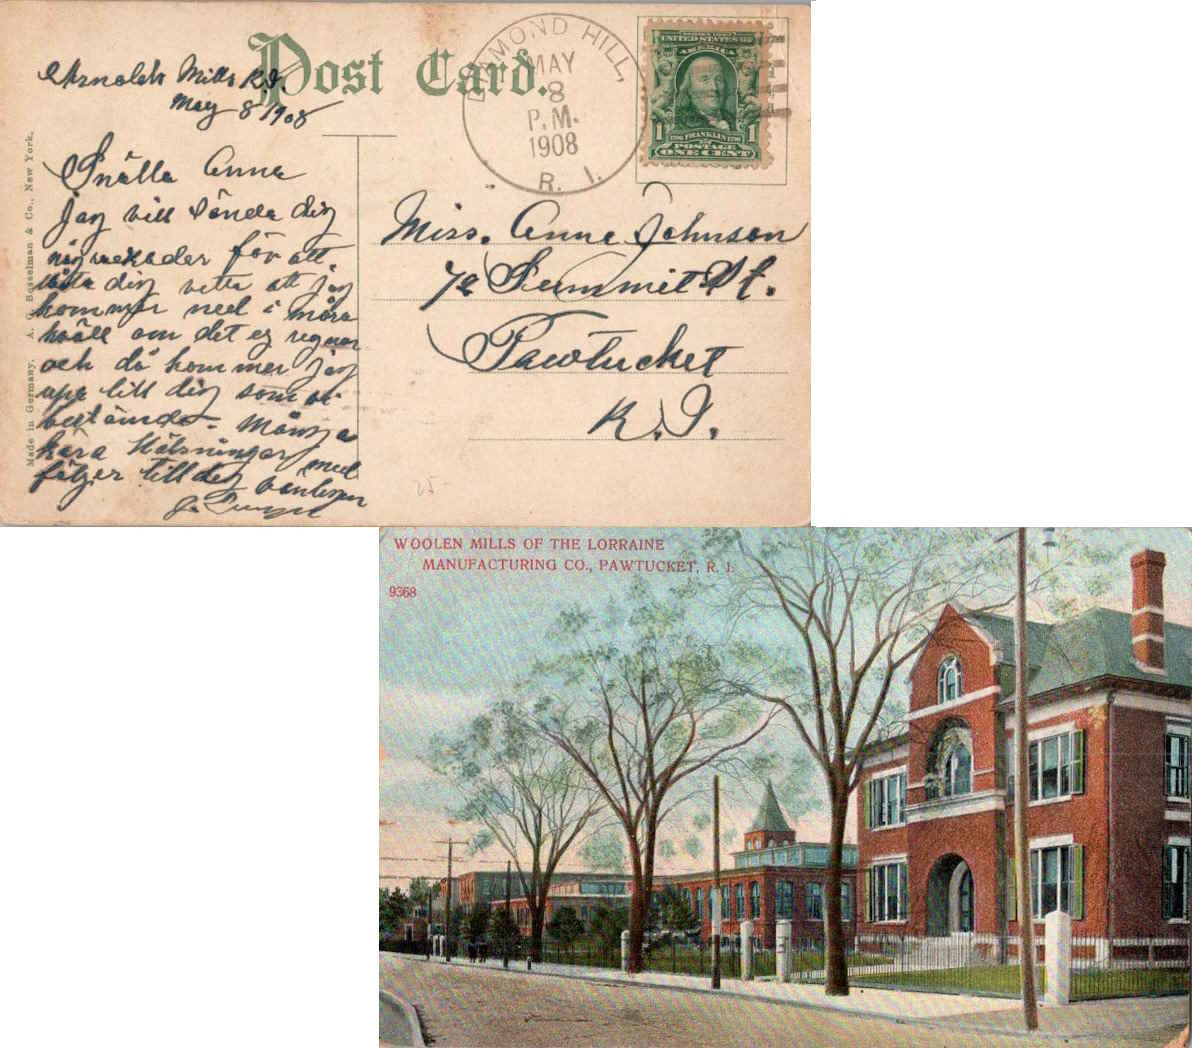 Post Card.
Arnolds Mills R.I.
May 8 1908
DIAMOND HILL,
MAY
8
P.M.
1908
R. I.
SERIES 1902
UNITED STATES OF
AMERICA
1 1706 FRANKLIN 1790 1
POSTAGE
ONE CENT
Snälla Anna
jag vill sända dig
några rader för att
låta dig veta att jag
kommer ned i
kväll om det ej regnar
och då kommer jag
upp till dig som vi
bestämde. Många
kära Hälsningar med
följer till dig vänligen
Miss. Anna Johnson
72 Summit St.
Pawtucket
R.I.
Made in Germany. A. C. Bosselman & Co., New York.
WOOLEN MILLS OF THE LORRAINE
MANUFACTURING CO., PAWTUCKET, R. I.
9368